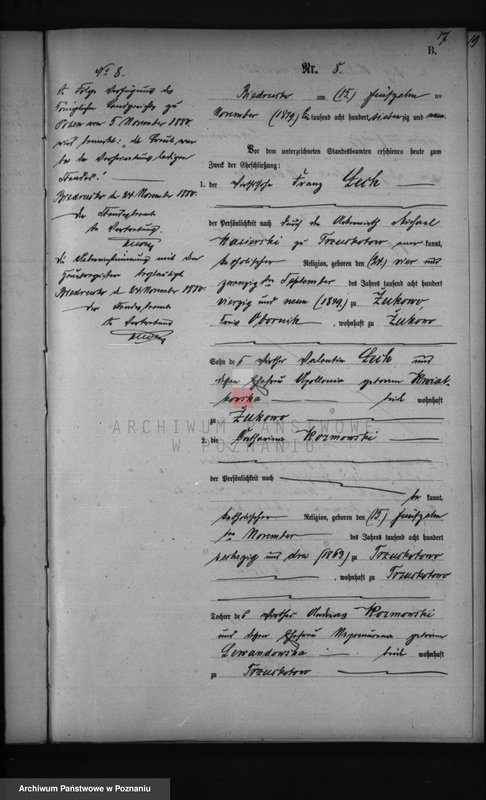 17
19
B.
No 8.
Nr. 8.
In Folge Verfügung des
Königlichen Landgerichts zu
Posen vom 5 November 1880
wird bemerkt: die Braut war
bei der Verheiratung ledigen
Standes.
Biedrusko d 24 November 1880.
Der Standesbeamte
In Vertretung.
Die Uebereinstimmung mit dem
Hauptregister beglaubigt
Biedrusko d 24 November 1880.
Der Standesbeamte
In Vertretung
Biedrusko am (15) fünfzehn ten
November (1879) tausend acht hundert siebenzig und neun.
Vor dem unterzeichneten Standesbeamten erschienen heute zum
Zweck der Eheschließung:
1. der Wirthssohn Franz Leik
der Persönlichkeit nach durch den Michael
zu Trzuskotowo kannt,
katholischer Religion, geboren den (24) vier und
zwanzigsten September des Jahres tausend acht hundert
vierzig und neun (1849) zu Żukowo
Kreis Obornik, wohnhaft zu Żukowo
Sohn des Wirthes Valentin Leik und
dessen Ehefrau Apollonia geborene Kwiat-
kowska beide wohnhaft
zu Żukowo
2. die Catharina Kozmowski
der Persönlichkeit nach
be kannt,
katholischer Religion, geboren den (15) fünfzehn
ten November des Jahres tausend acht hundert
sechszig und drei (1863) zu Trzuskotowo
, wohnhaft zu Trzuskotowo
Tochter des Wirthes Andreas Kozmowski
und dessen Ehefrau Nepomucena geborene
Lewandowska beide wohnhaft
zu Trzuskotowo
ARCHIWUM PAŃSTWOWE
W POZNANIU
Archiwum Państwowe w Poznaniu